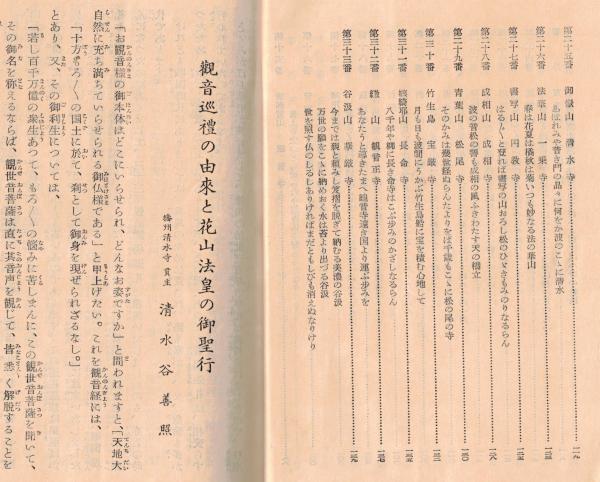 第二十五番 御嶽山 清水寺 一一九
あはれみや普き門の品々に何をか波のこゝに清水
第二十六番 法華山 一乗寺
春は花夏は橘秋は菊いつも妙なる法の華山
第二十七番 書写山 円教寺
はる〴〵と登れば書写の山おろし松のひゞきもみのりなるらん
第二十八番 成相山 成相寺 一二八
波の音松の響も成相の風ふきわたす天の橋立
第二十九番 青葉山 松尾寺 一三〇
そのかみは幾世経ぬらんたよりをば千歳もこゝに松の尾の寺
第三十番 竹生島 宝厳寺
月も日も波間にうかぶ竹生島船に宝を積む心地して
第三十一番 長命寺
八千年や柳に長き命寺はこぶ歩みのかざしなるらん
第三十二番 繖山 観音正寺 一四七
あなたうと導きたまへ観音寺遠き国より運ぶ歩みを
第三十三番 谷汲山 華厳寺 一四九
今までは親と頼みし笈摺を脱ぎて納むる美濃の谷汲
万世の願をこゝに納めおく水は苔より出づる谷汲
世を照す仏のしるしありければまだともしびも消えぬなりけり
觀音巡禮の由來と花山法皇の御聖行
播州清水寺貫主 清水谷善照
「お観音様の御本体はどこにいらせられ、どんなお姿ですか」と問われますと、「天地大
自然に充ち満ちていらせられる御仏様である」と申上げたい。これを観音経には、
「十方もろ〳〵の国土に於て、刹として御身を現ぜられざるなし。」
とあり、又、その御利生については、
「若し百千万億の衆生あつて、もろ〳〵の悩みに苦しまんに、この観世音菩薩を聞いて、
その御名を称えるならば、観世音菩薩は直に其音声を観じて、皆悉く解脱することを